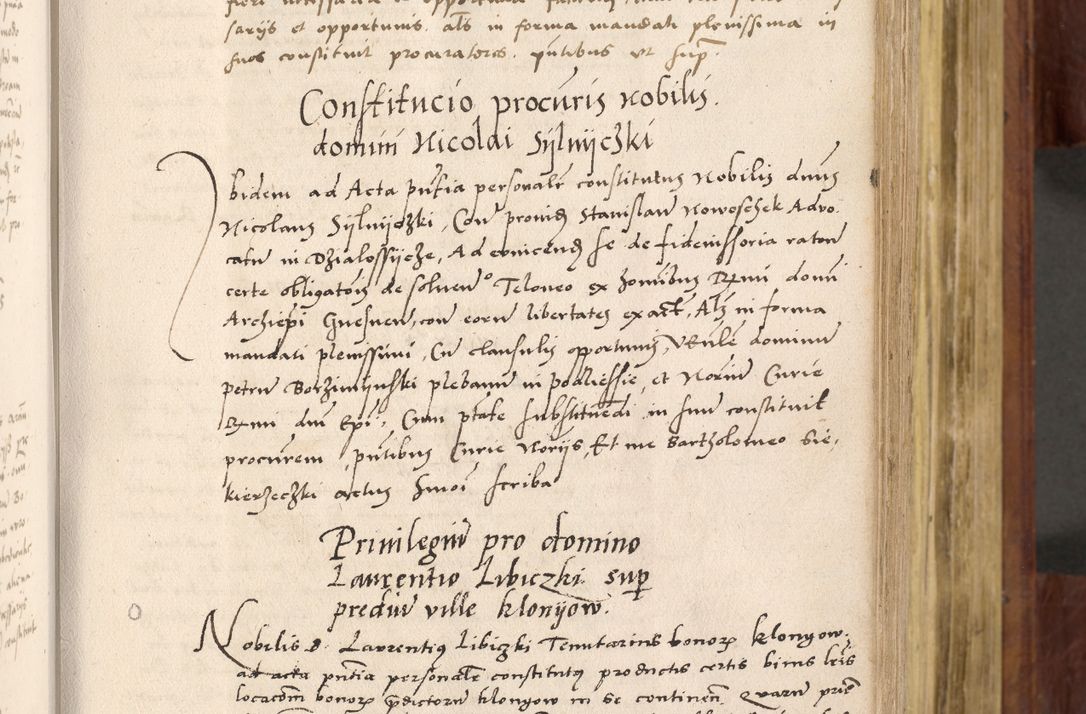 sarijs et opportunis. als in forma mandati plenissima in
suos constituit procuratores. pntibus vt sup.
Constitucio procuris Nobilis.
domini Nicolai Sylnyczki
Ibidem ad Acta pntia personalr constitutus Nobilis dnus
Nicolaus Sylnyczki, Con provid Stanislaw Nowosehek Advo
catu in Dzialossycze, Ad evincend se de fideiussoria raton
certe obligatois de solven Teloneo ex homibus Rmi domi
Archiepi Gnesnen, con eoru libertates exact, Als in forma
mandati plenissimi, Cu clausulis opportunis, Vnble dominu
petru Borzimynski plebanu in podliessie, et Noriu Curie
Rmi dni Epi, Cum ptate substituedi in suu constituit
procurem, pntibus Curie Norijs, Et me Bartholomeo Sie,
kierzeczki actus Smoi scriba
Privilegiu pro domino
Laurentio Libiczki sup
prediu ville klonyow.
Nobilis d. Laurentius Libiczki Tenutarius bonor klonyow
ad acta pntia personalr constitutus productis certis binis lris
locacom bonor pdictoru klonyow in se continen Quaru prie